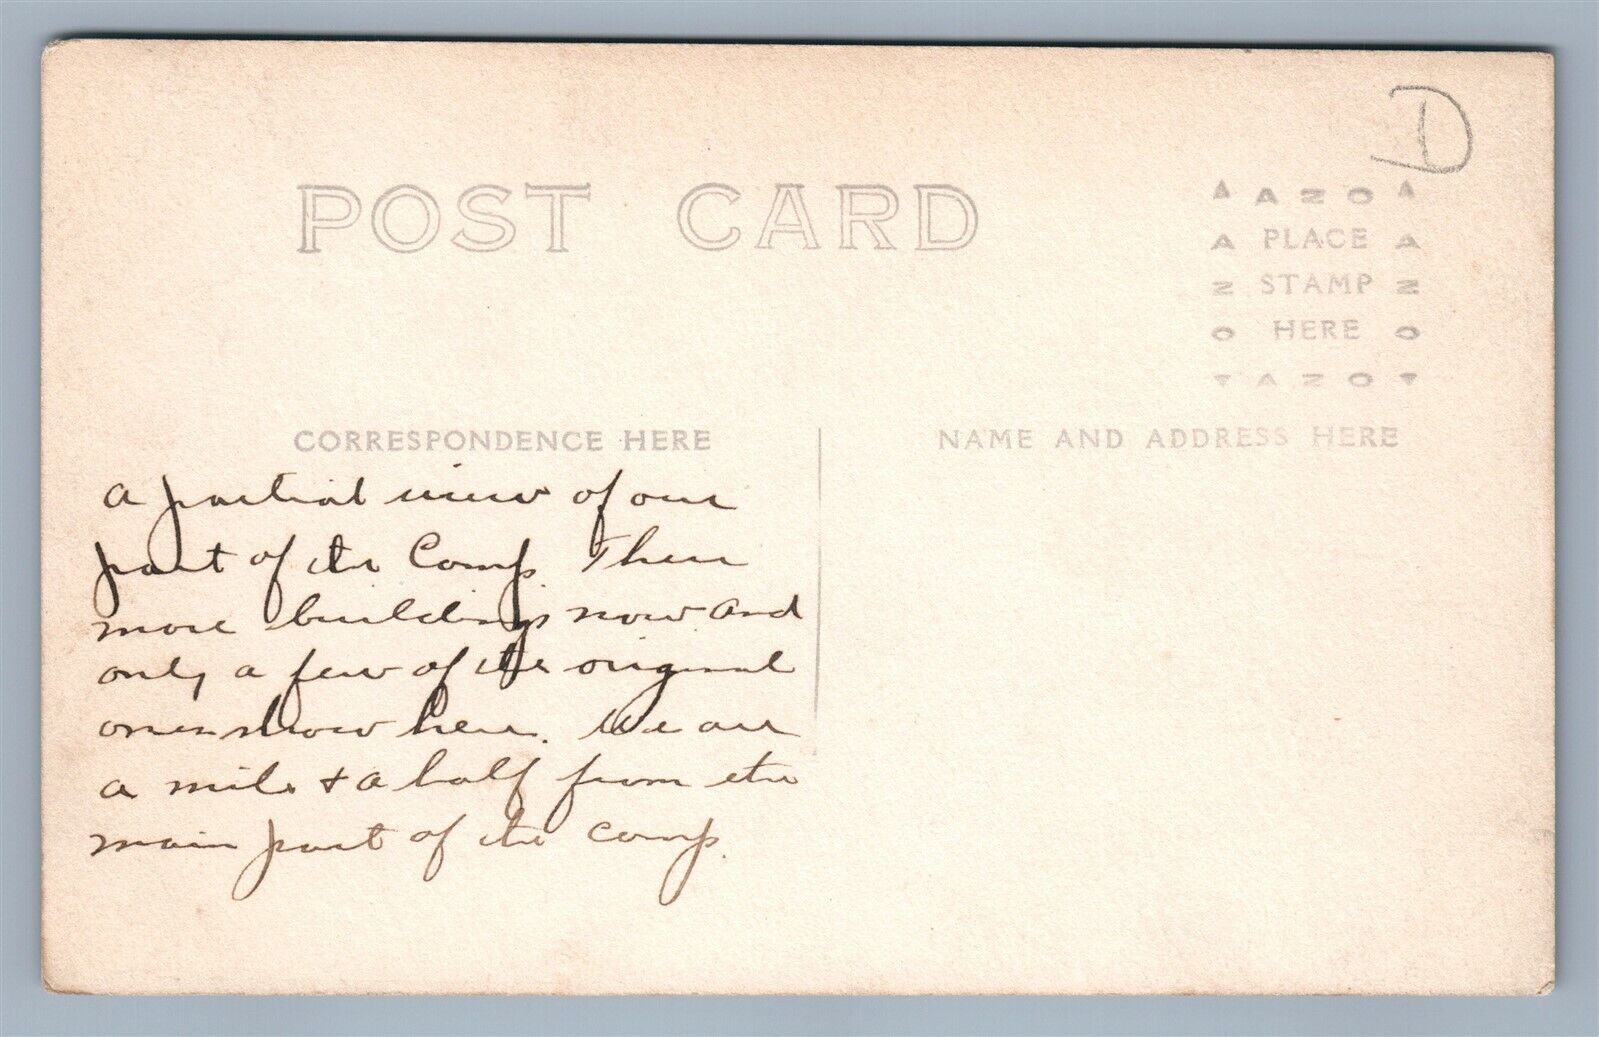 D
POST CARD
AZO
PLACE
STAMP
HERE
AZO
CORRESPONDENCE HERE
NAME AND ADDRESS HERE
A partial view of our
part of the Camp. There
more buildings now and
only a few of the original
ones show here. We are
a mile & a half from the
main part of the camp.